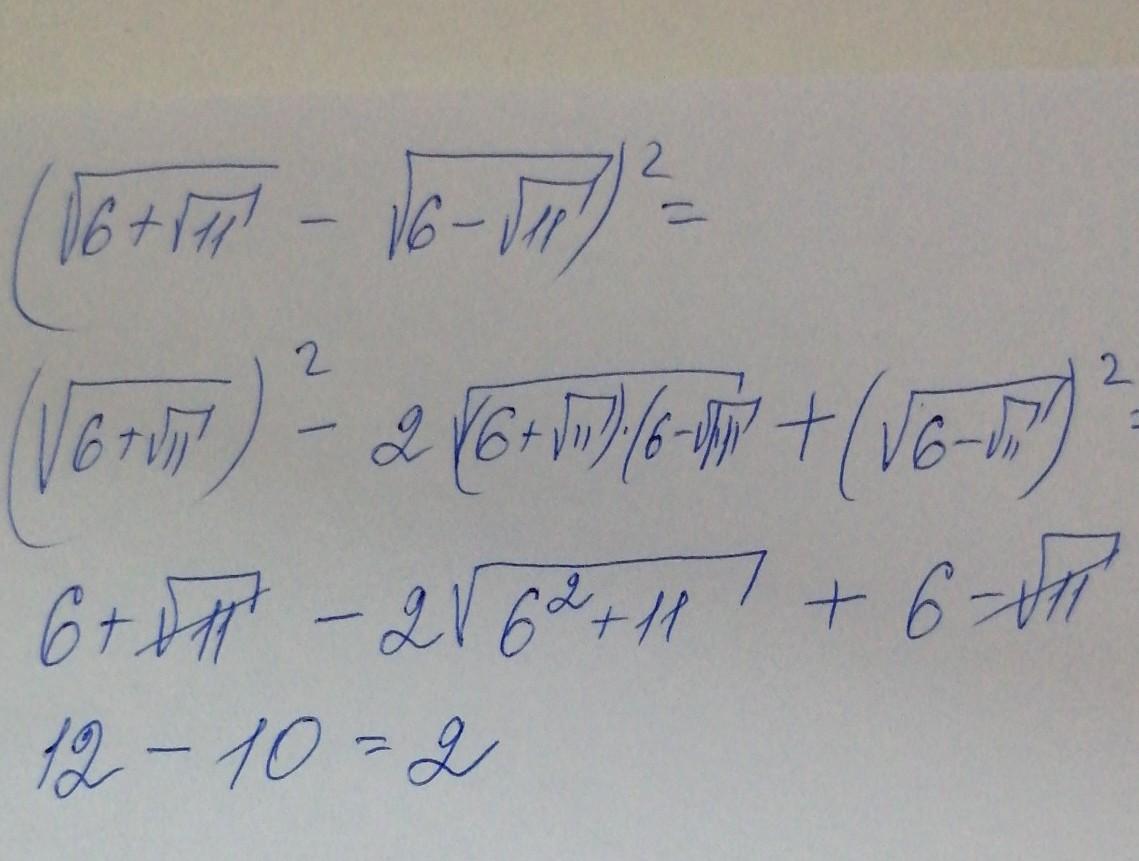 (√(6+√11) − √(6−√11))² =
(√(6+√11))² − 2√((6+√11)·(6−√11)) + (√(6−√11))² =
6+√11 − 2√(6²+11) + 6−√11
12 − 10 = 2